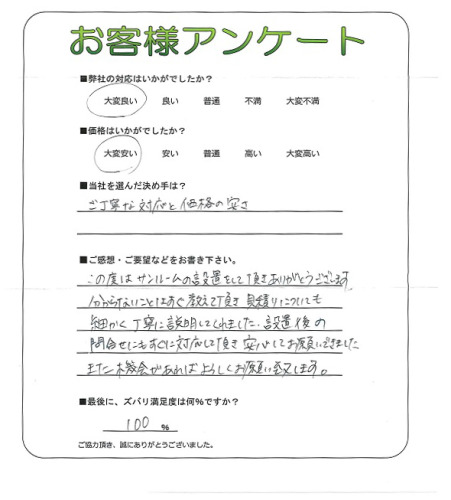 お客様アンケート
■弊社の対応はいかがでしたか？
大変良い 良い 普通 不満 大変不満
■価格はいかがでしたか？
大変安い 安い 普通 高い 大変高い
■当社を選んだ決め手は？
ご丁寧な対応と価格の安さ
■ご感想・ご要望などをお書き下さい。
この度はサンルームの設置をして頂きありがとうございます
分からないことはすぐ教えて頂き見積りについても
細かく丁寧に説明してくれました．設置後の
問合せにもすぐに対応して頂き安心してお願いできました
また機会があればよろしくお願い致します。
■最後に、ズバリ満足度は何％ですか？
100 ％
ご協力頂き、誠にありがとうございました。